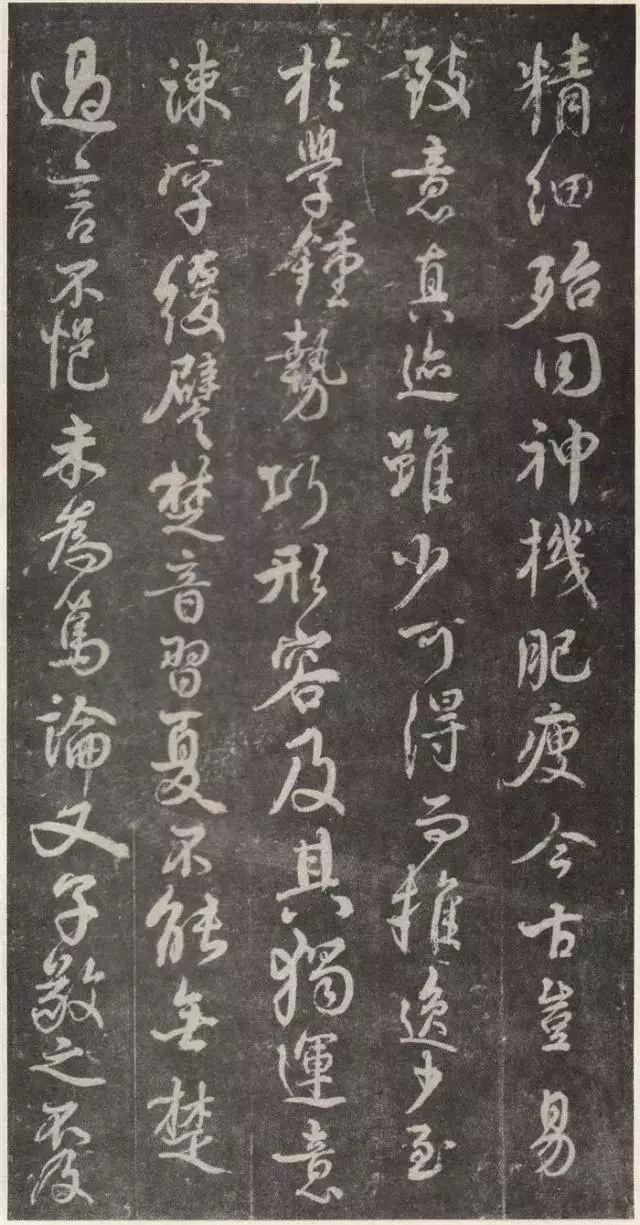 精細殆同神機肥瘦今古豈易
致意真迹雖少可得而推逸少至
於學鍾勢巧形容及其獨運意
疎字緩譬楚音習夏不能無楚
過言不悒未為篤論又子敬之不及